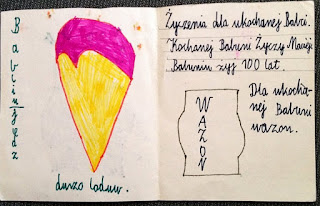 Babciu jedz
duzo loduw.
Życzenia dla ukochanej Babci.
Kochanej Babuni Życzy Maciej
Babuniu żyj 100 lat
WAZON
Dla ukocha-
nej Babuni
wazon.